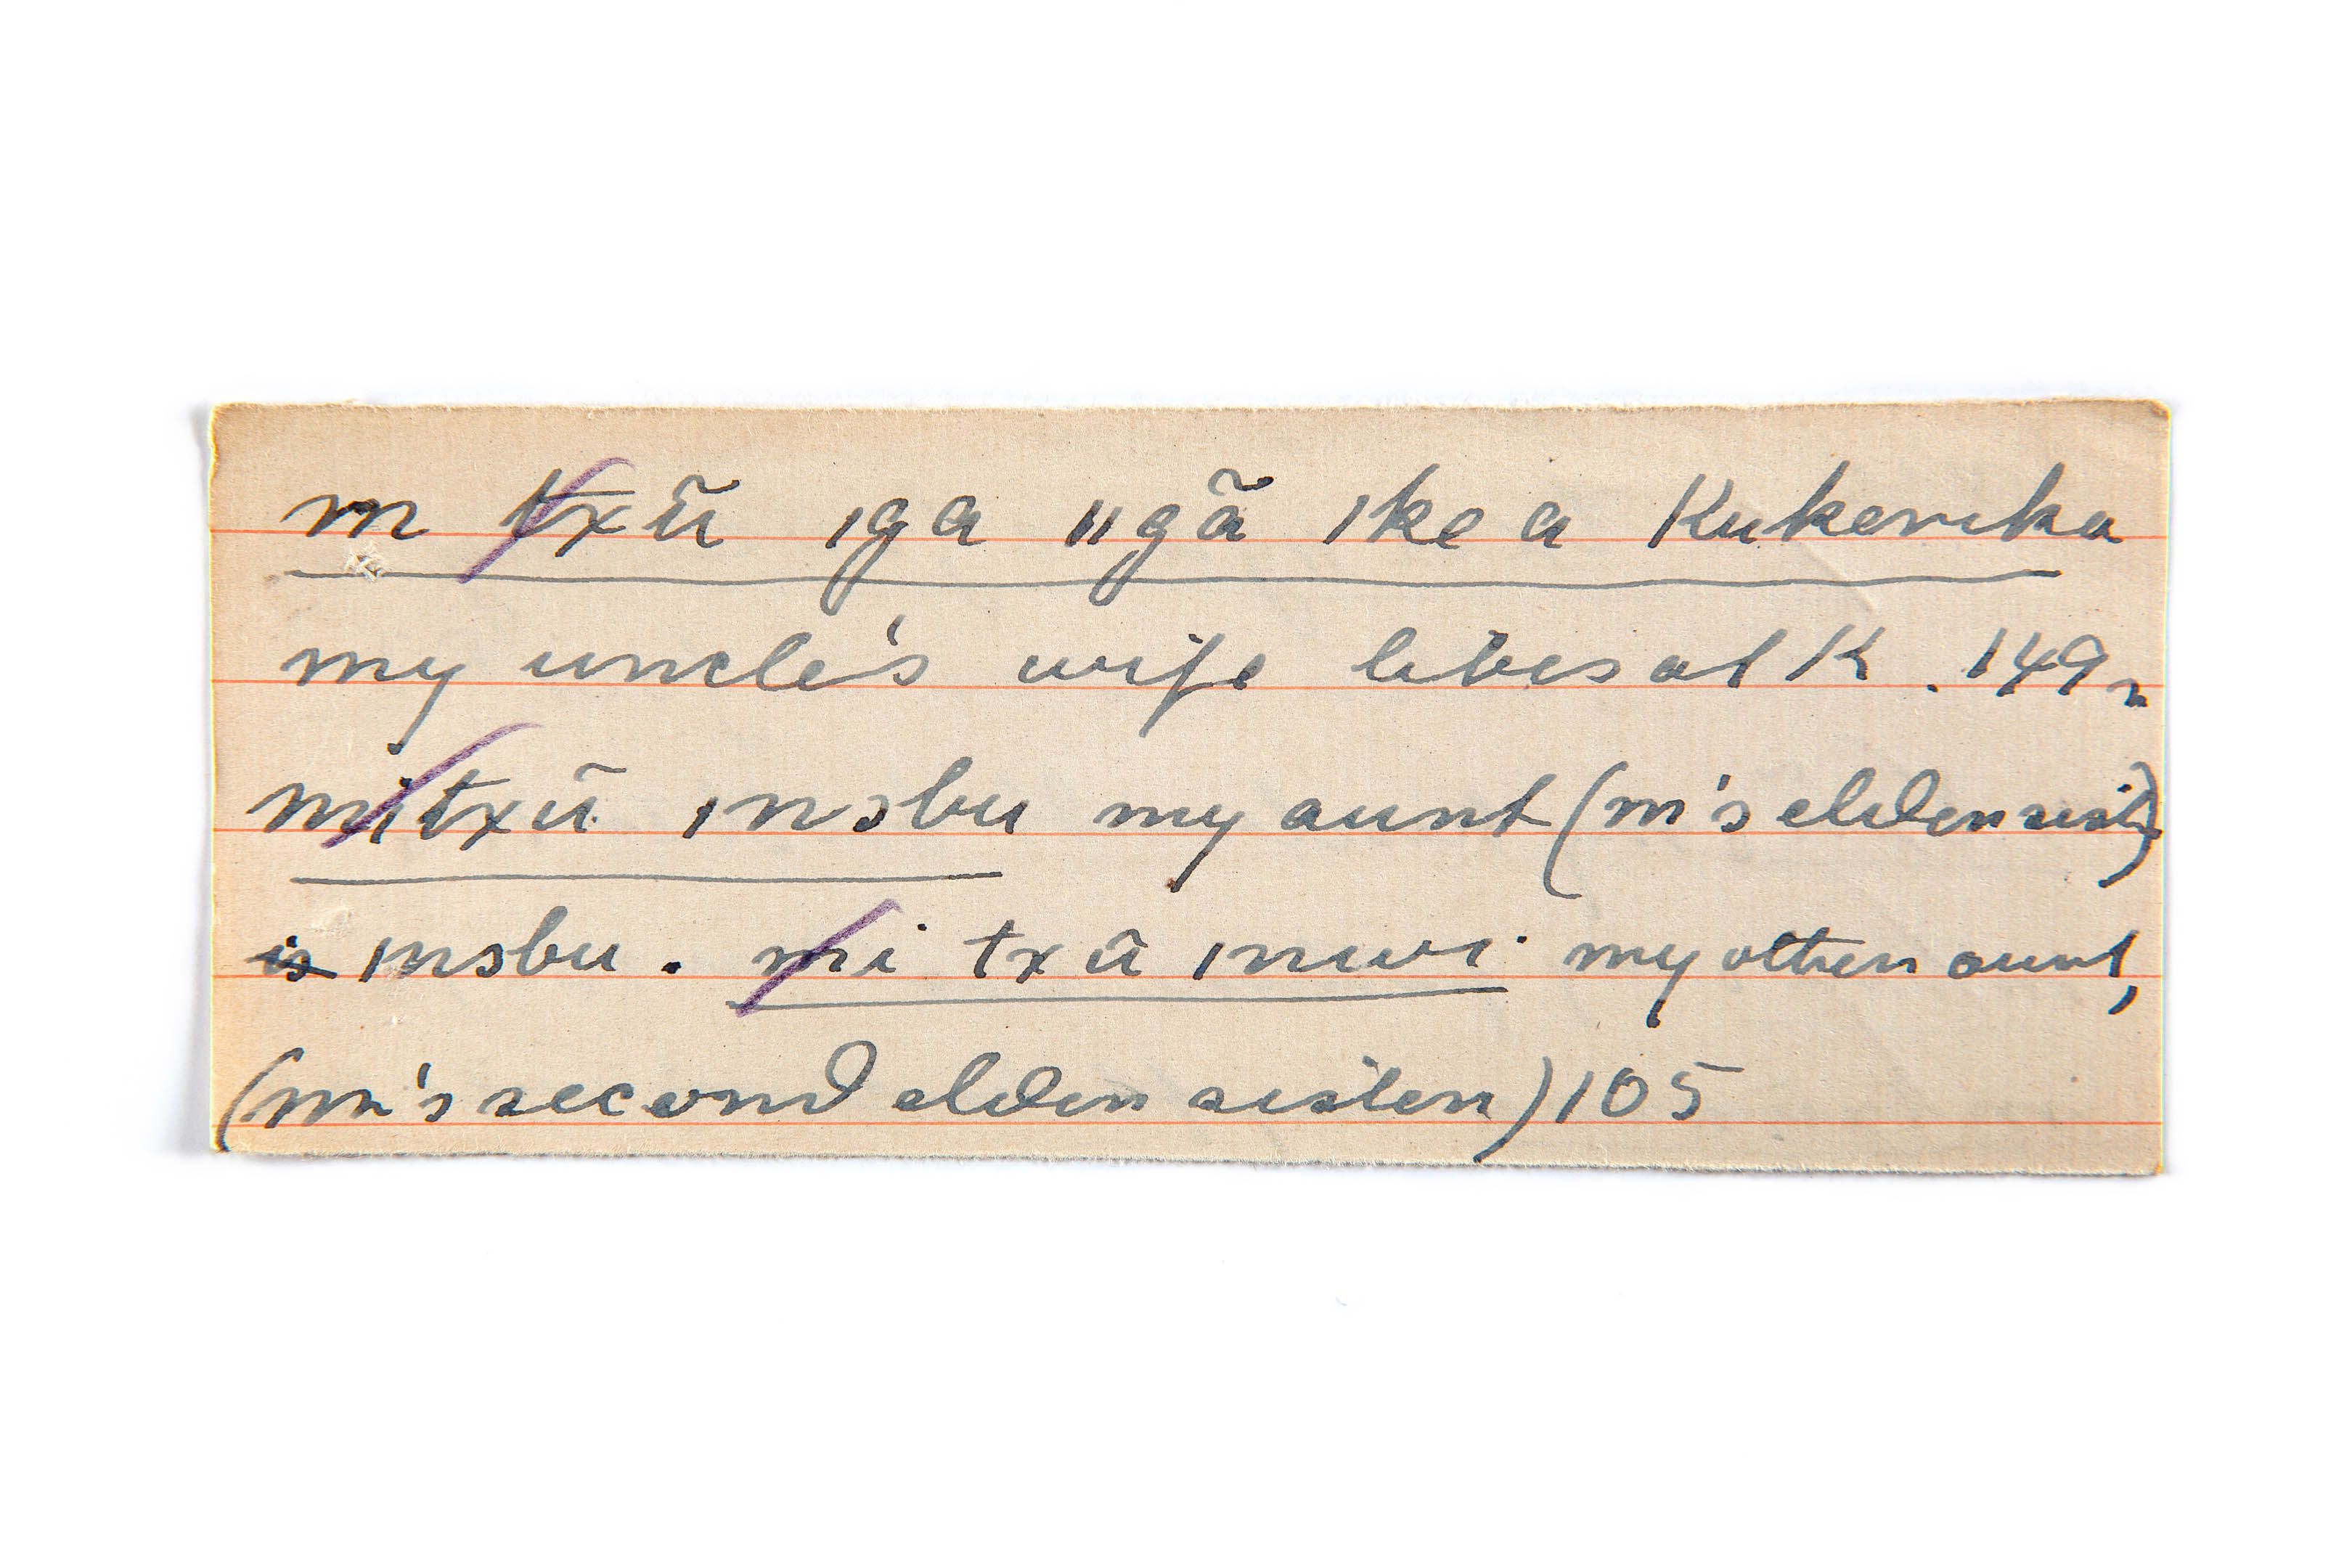 m txũ iga iigã ike a Kukervika
my uncle's wife lives at K. 149n
mitxũ insbu my aunt (m's elder sist)
is insbu. mi txũ inwi my other aunt,
(m's second elder sister) 105